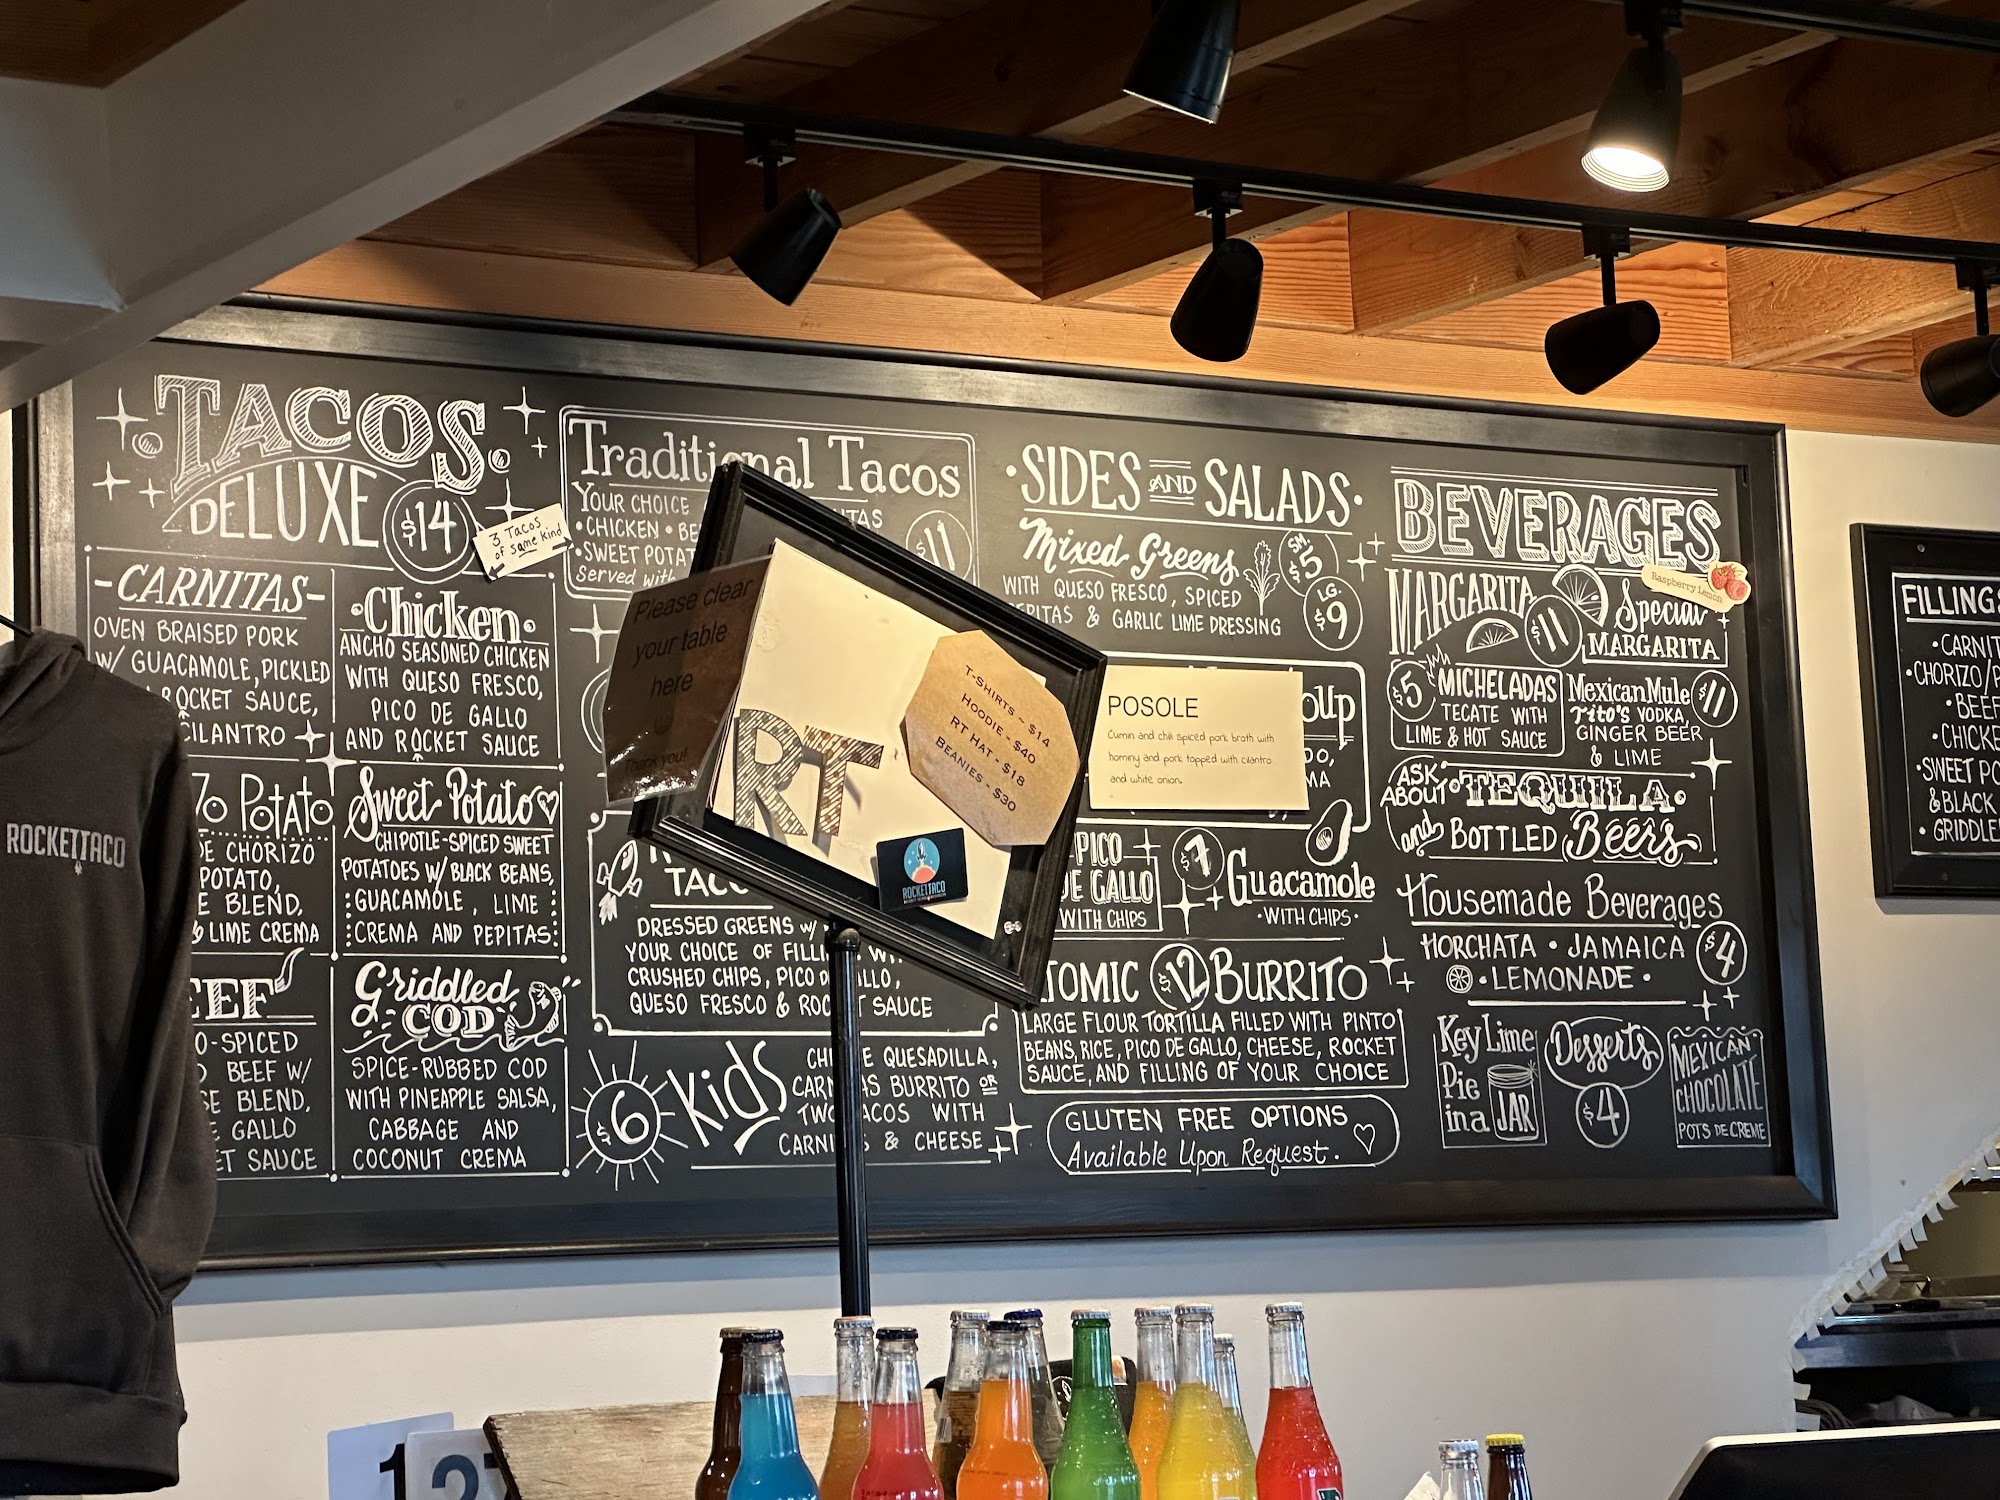 TACOS
DELUXE
$14
3 Tacos
of same kind
-CARNITAS-
OVEN BRAISED PORK
W/ GUACAMOLE, PICKLED
ROCKET SAUCE,
CILANTRO
Chicken
ANCHO SEASONED CHICKEN
WITH QUESO FRESCO,
PICO DE GALLO
AND ROCKET SAUCE
POTATO
CHORIZO
POTATO,
BLEND,
& LIME CREMA
Sweet Potato
CHIPOTLE-SPICED SWEET
POTATOES W/ BLACK BEANS,
GUACAMOLE, LIME
CREMA AND PEPITAS
-SPICED
BEEF W/
BLEND,
GALLO
SAUCE
Griddled
COD
SPICE-RUBBED COD
WITH PINEAPPLE SALSA,
CABBAGE AND
COCONUT CREMA
Traditional Tacos
YOUR CHOICE
• CHICKEN •
• SWEET
Served with
$11
TACO
DRESSED GREENS W/
YOUR CHOICE OF
CRUSHED CHIPS, PICO
QUESO FRESCO & ROCKET SAUCE
$6
Kids
QUESADILLA,
CARNITAS BURRITO OR
TWO TACOS WITH
& CHEESE
Please clear
your table
here
Thank you!
RT
T-SHIRTS ~ $14
HOODIE - $40
RT HAT - $18
BEANIES - $30
ROCKETTACO
• SIDES AND SALADS •
Mixed Greens
SM. $5
LG. $9
WITH QUESO FRESCO, SPICED
PEPITAS & GARLIC LIME DRESSING
POSOLE
Cumin and chili spiced pork broth with
hominy and pork topped with cilantro
and white onion.
PICO
DE GALLO
WITH CHIPS
$7
Guacamole
• WITH CHIPS •
ATOMIC $12 BURRITO
LARGE FLOUR TORTILLA FILLED WITH PINTO
BEANS, RICE, PICO DE GALLO, CHEESE, ROCKET
SAUCE, AND FILLING OF YOUR CHOICE
GLUTEN FREE OPTIONS
Available Upon Request.
BEVERAGES
MARGARITA $11
Raspberry Lemon
Special
MARGARITA
$5 MICHELADAS
TECATE WITH
LIME & HOT SAUCE
Mexican Mule $11
Tito's VODKA,
GINGER BEER
& LIME
ASK
ABOUT • TEQUILA •
and BOTTLED Beers
Housemade Beverages
HORCHATA • JAMAICA
• LEMONADE •
$4
Key Lime
Pie
in a JAR
Desserts
$4
MEXICAN
CHOCOLATE
POTS DE CREME
FILLINGS
• CHORIZO/
• BEEF
• SWEET
& BLACK
ROCKETTACO